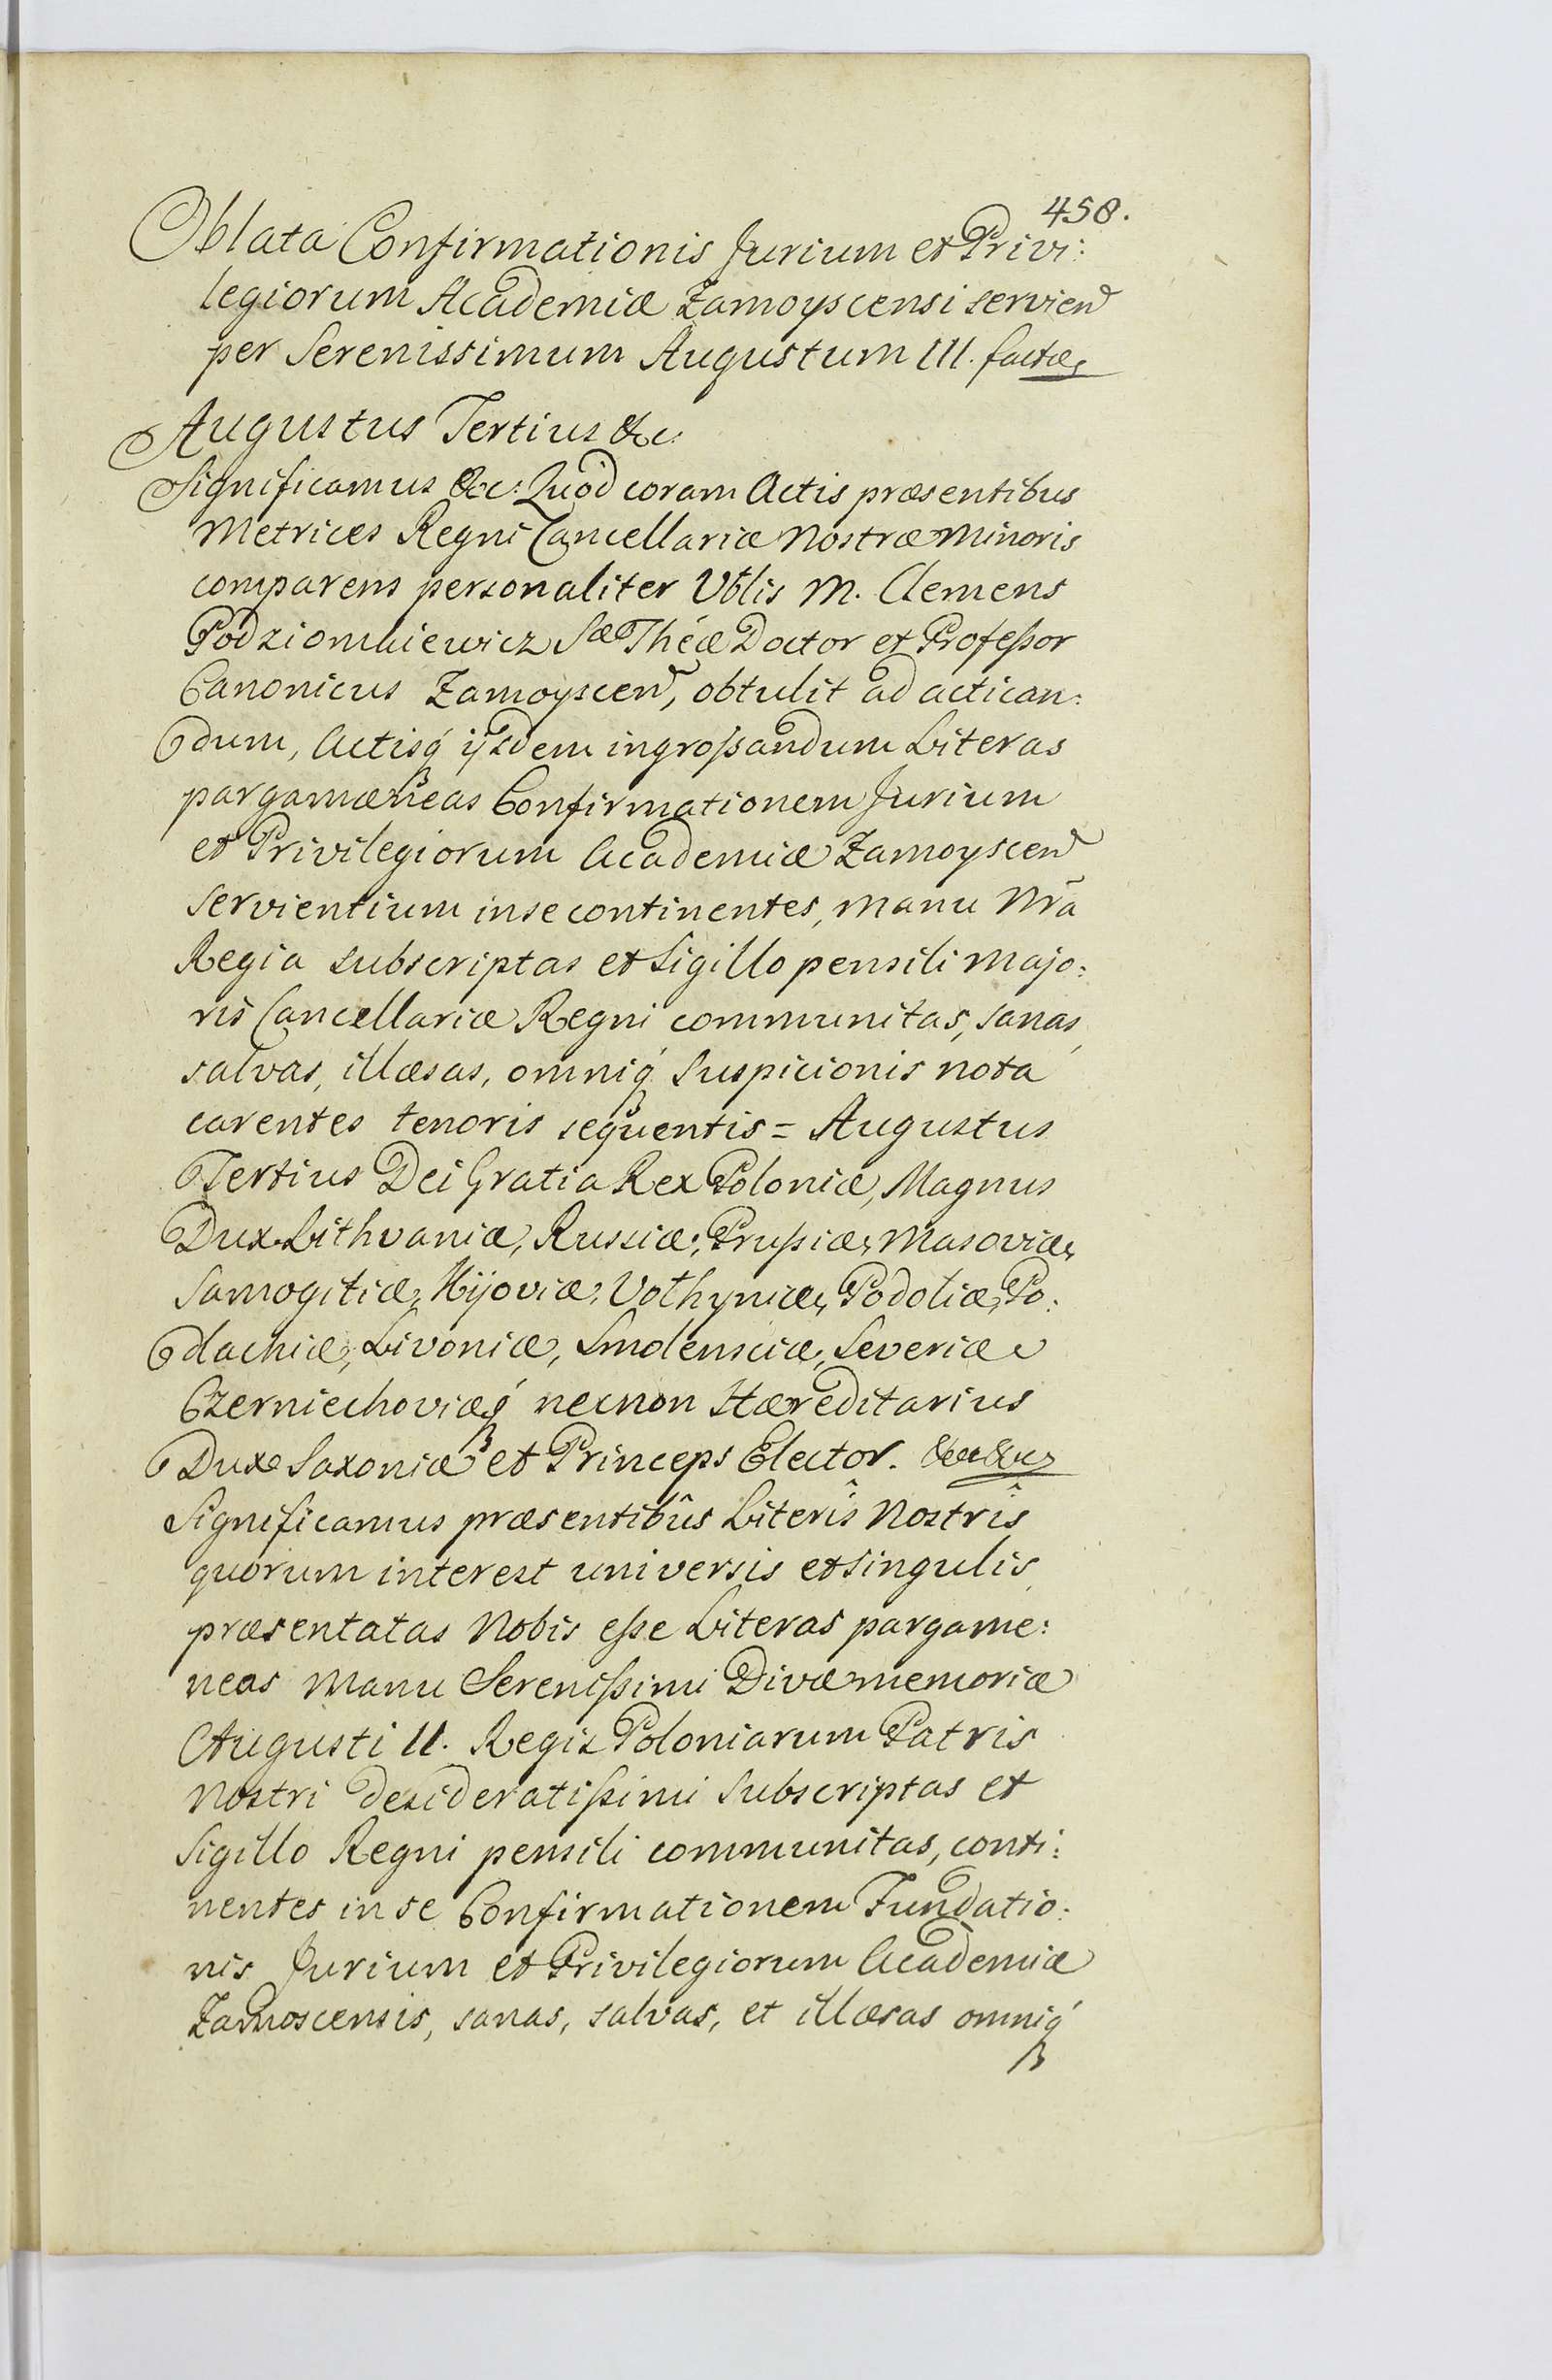 458.
Oblata Confirmationis Jurium et Privi:
legiorum Academiæ Zamoyscensi servien̄
per Serenissimum Augustum III. factæ,
Augustus Tertius &c:
Significamus &c: Quòd coram Actis præsentibus
Metrices Regni Cancellariæ Nostræ Minoris
comparens personaliter Vblis M. Clemens
Podziomkiewicz Sæ Theæ Doctor et Profeſsor
Canonicus Zamoyscen̄, obtulit ad actican:
dum, Actisq́ ijsdem ingroſsandum Literas
pargamæneas Confirmationem Jurium
et Privilegiorum Academiæ Zamoyscen̄
servientium in se continentes, Manu Nr̄a
Regia subscriptas et Sigillo pensili Majo:
ris Cancellariæ Regni communitas, sanas,
salvas, illæsas, omniq́ Suspicionis nota
carentes tenoris sequentis = Augustus
Tertius Dei Gratia Rex Poloniæ, Magnus
Dux Lithvaniæ, Russiæ, Pruſsiæ, Masoviæ,
Samogitiæ, Kijoviæ, Volhyniæ, Podoliæ, Po:
dlachiæ, Livoniæ, Smolensciæ, Severiæ
Czerniechoviæq́ necnon Hæreditarius
Dux Saxoniæ et Princeps Elector. &c &c
Significamus præsentibûs Literîs Nostrîs
quorum interest universis et singulis
præsentatas Nobis eſse Literas pargame:
neas Manu Sereniſsimi Divæ memoriæ
Augusti II. Regis Poloniarum Patris
Nostri desideratiſsimi Subscriptas et
Sigillo Regni pensili communitas, conti:
nentes in se Confirmationem Fundatio:
nis Jurium et Privilegiorum Academiæ
Zamoscensis, sanas, salvas, et illæsas omniq́